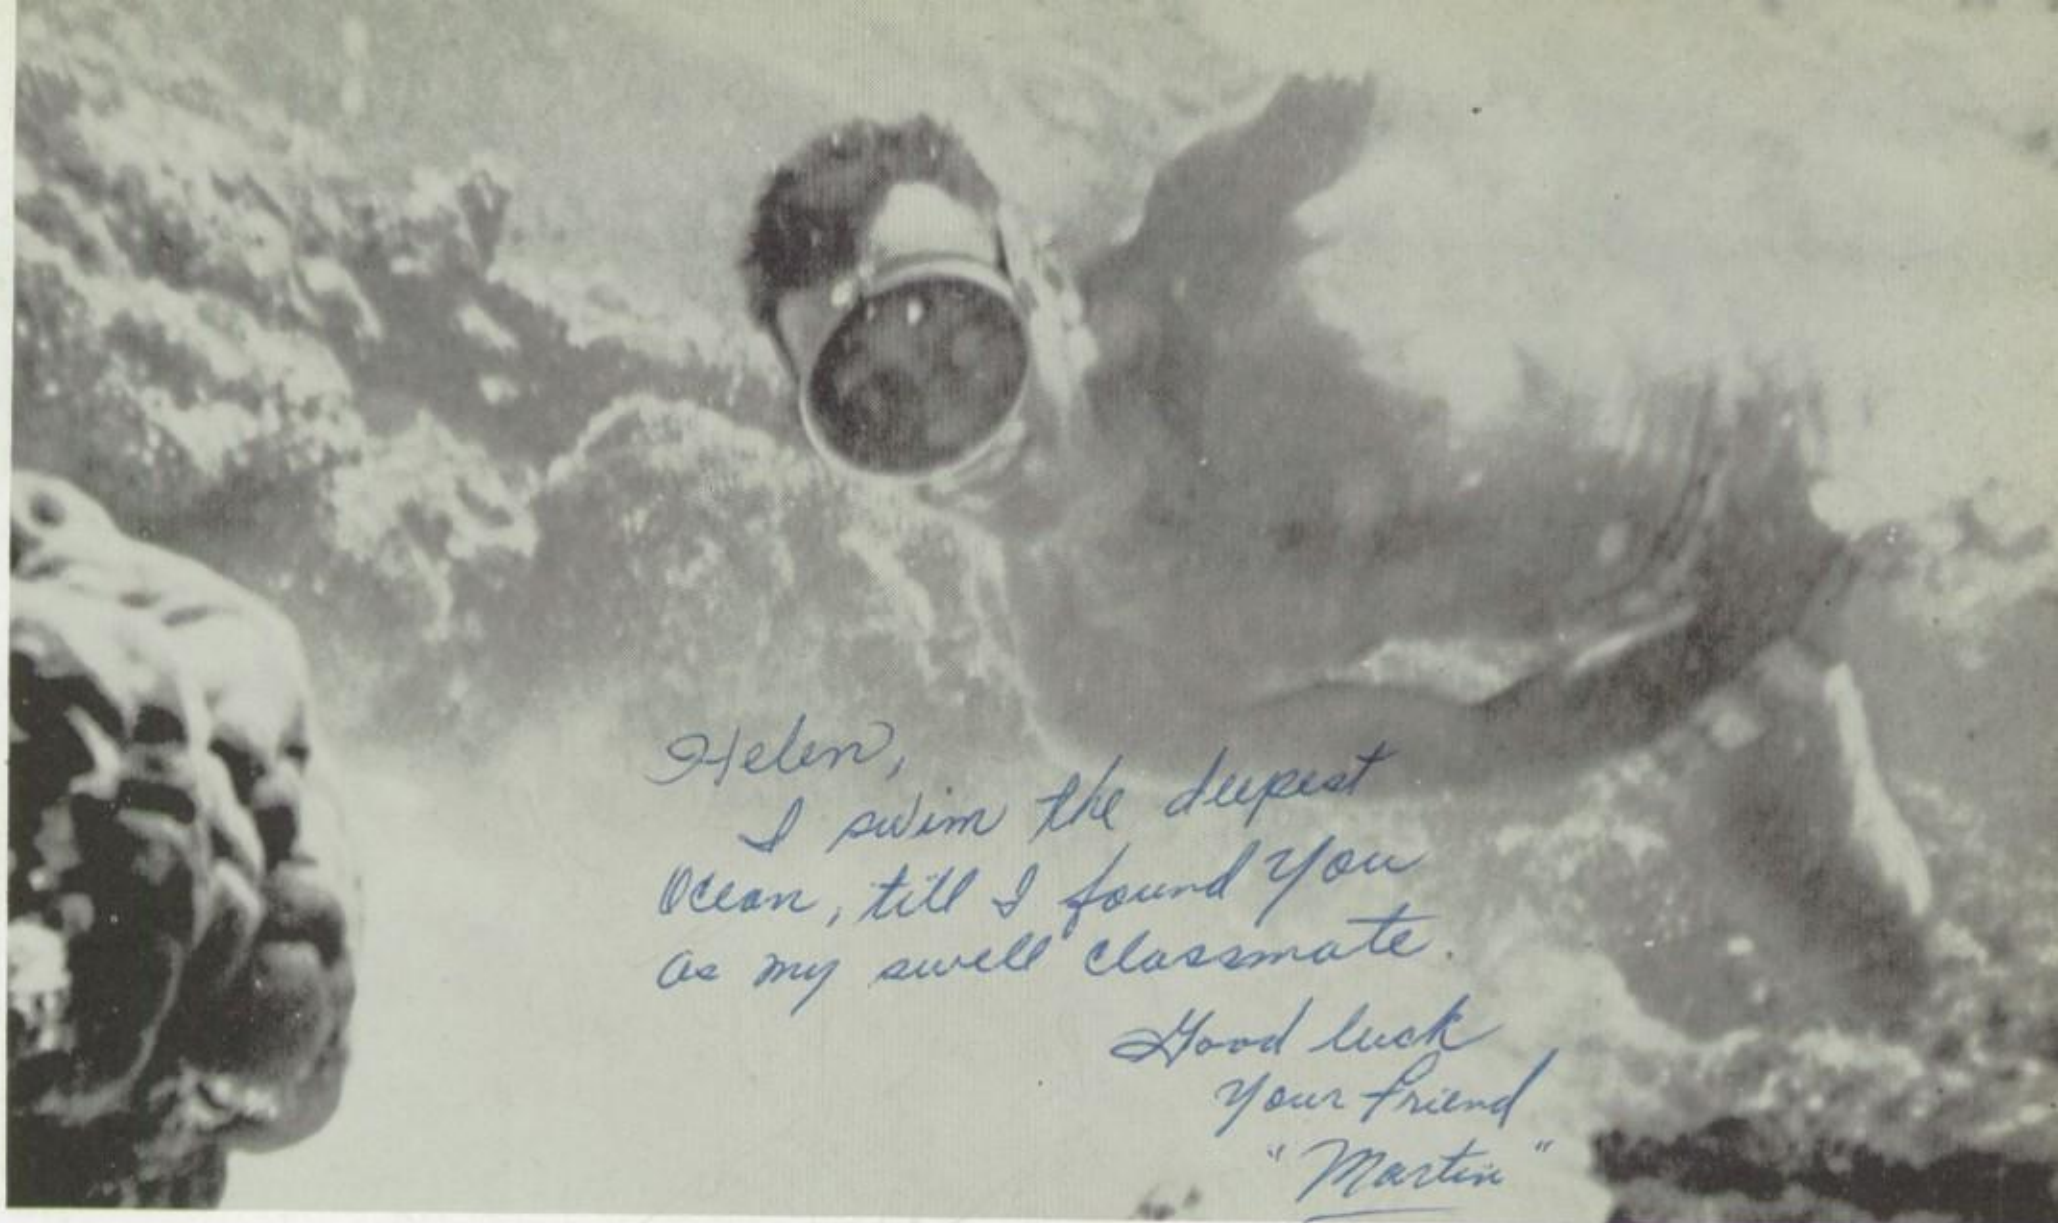 Helen,
I swim the deepest
Ocean, till I found you
as my swell classmate.
Good luck
Your friend
"Martin"